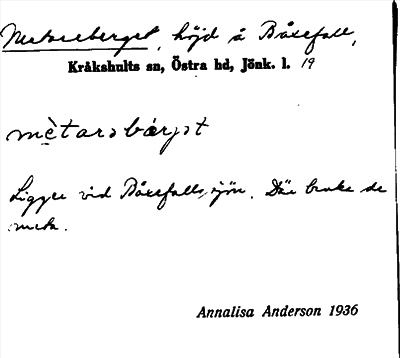 Metareberget, höjd å Båxefall,
Kråkshults sn, Östra hd, Jönk. l. 19
mètarəbærjət
Ligger vid Båxefallssjön. Där bruka de
meta.
Annalisa Anderson 1936